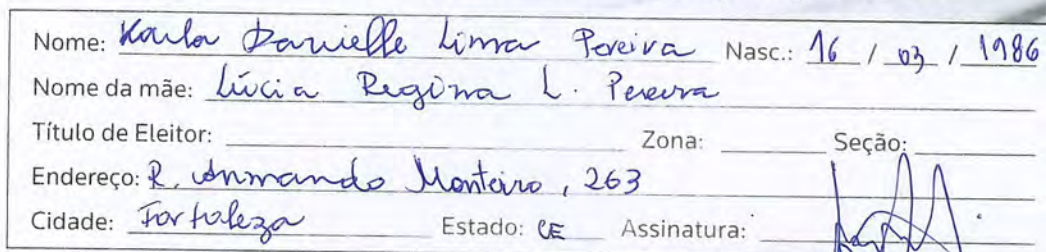 Nome: Karla Danielle Lima Pereira Nasc.: 16 / 03 / 1986
Nome da mãe: Lúcia Regina L. Pereira
Título de Eleitor: Zona: Seção:
Endereço: R. Armando Monteiro, 263
Cidade: Fortaleza Estado: CE Assinatura: